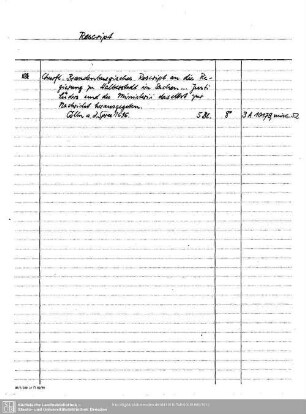 Rescript
Churfl. Brandenburgisches Rescript an die Re-
gierung zu Halberstadt in Sachen ... Justi
und des Ministerii daselbst zur
Nachricht herausgegeben.
Cölln a. d. Spree 1696. 5 Bl. 8° 3 A 10179 misc. 52
Sächsische Landesbibliothek -
Staats- und Universitätsbibliothek Dresden